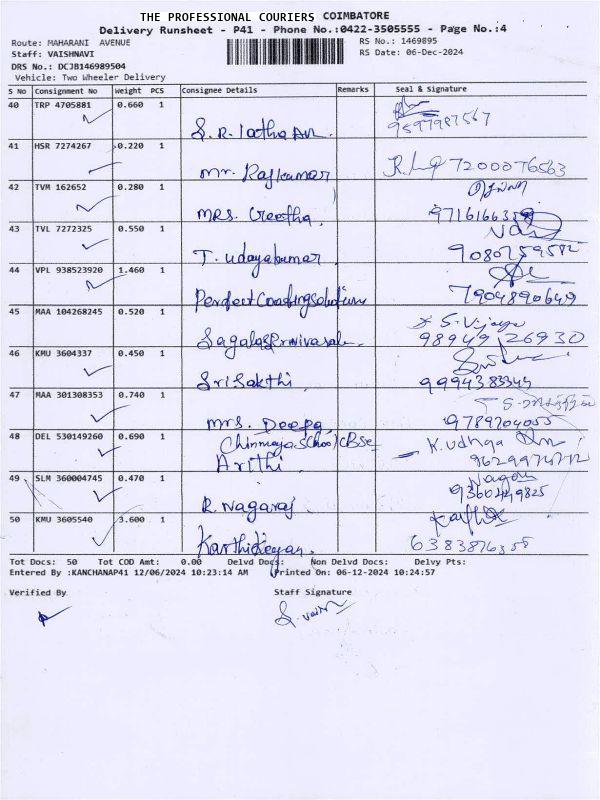 THE PROFESSIONAL COURIERS COIMBATORE
Delivery Runsheet - P41 - Phone No.:0422-3505555 - Page No.:4
Route: MAHARANI AVENUE RS No.: 1469895
Staff: VAISHNAVI RS Date: 06-Dec-2024
DRS No.: DCJB146989504
Vehicle: Two Wheeler Delivery
S No Consignment No Weight PCS Consignee Details Remarks Seal & Signature
40 TRP 4705881 0.660 1
9597987567
41 HSR 7274267 0.220 1
Mr. Rajkumar 7200076563
42 TVM 162652 0.280 1
MRS. Geetha
43 TVL 7272325 0.550 1
T. Udayakumar 9080259582
44 VPL 938523920 1.460 1
Perfect Coating Solutions 7904890649
45 MAA 104268245 0.520 1
S. Vijaya
98949 26930
46 KMU 3604337 0.450 1
Sri Sakthi 9994383345
47 MAA 301308353 0.740 1
Mrs. Deepa 9789704055
48 DEL 530149260 0.690 1
Chinmaya School CBSE
Arithi
49 SLM 360004745 0.470 1
R. Nagaraj
50 KMU 3605540 3.600 1
Karthikeyan
Tot Docs: 50 Tot COD Amt: 0.00 Delvd Docs: Non Delvd Docs: Delvy Pts:
Entered By :KANCHANAP41 12/06/2024 10:23:14 AM Printed On: 06-12-2024 10:24:57
Verified By Staff Signature